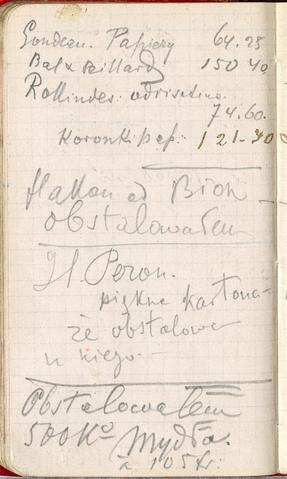 Gondeau. Papiery 64.25
Bal & Billard 150 40
74.60.
Koronki pap. 121-40
flakon od Bion
obstalowałem
H Peron.
piękne kartona-
że obstalowa
u niego.
Obstalowałem
500 Ko Mydła.
à 105 fr.